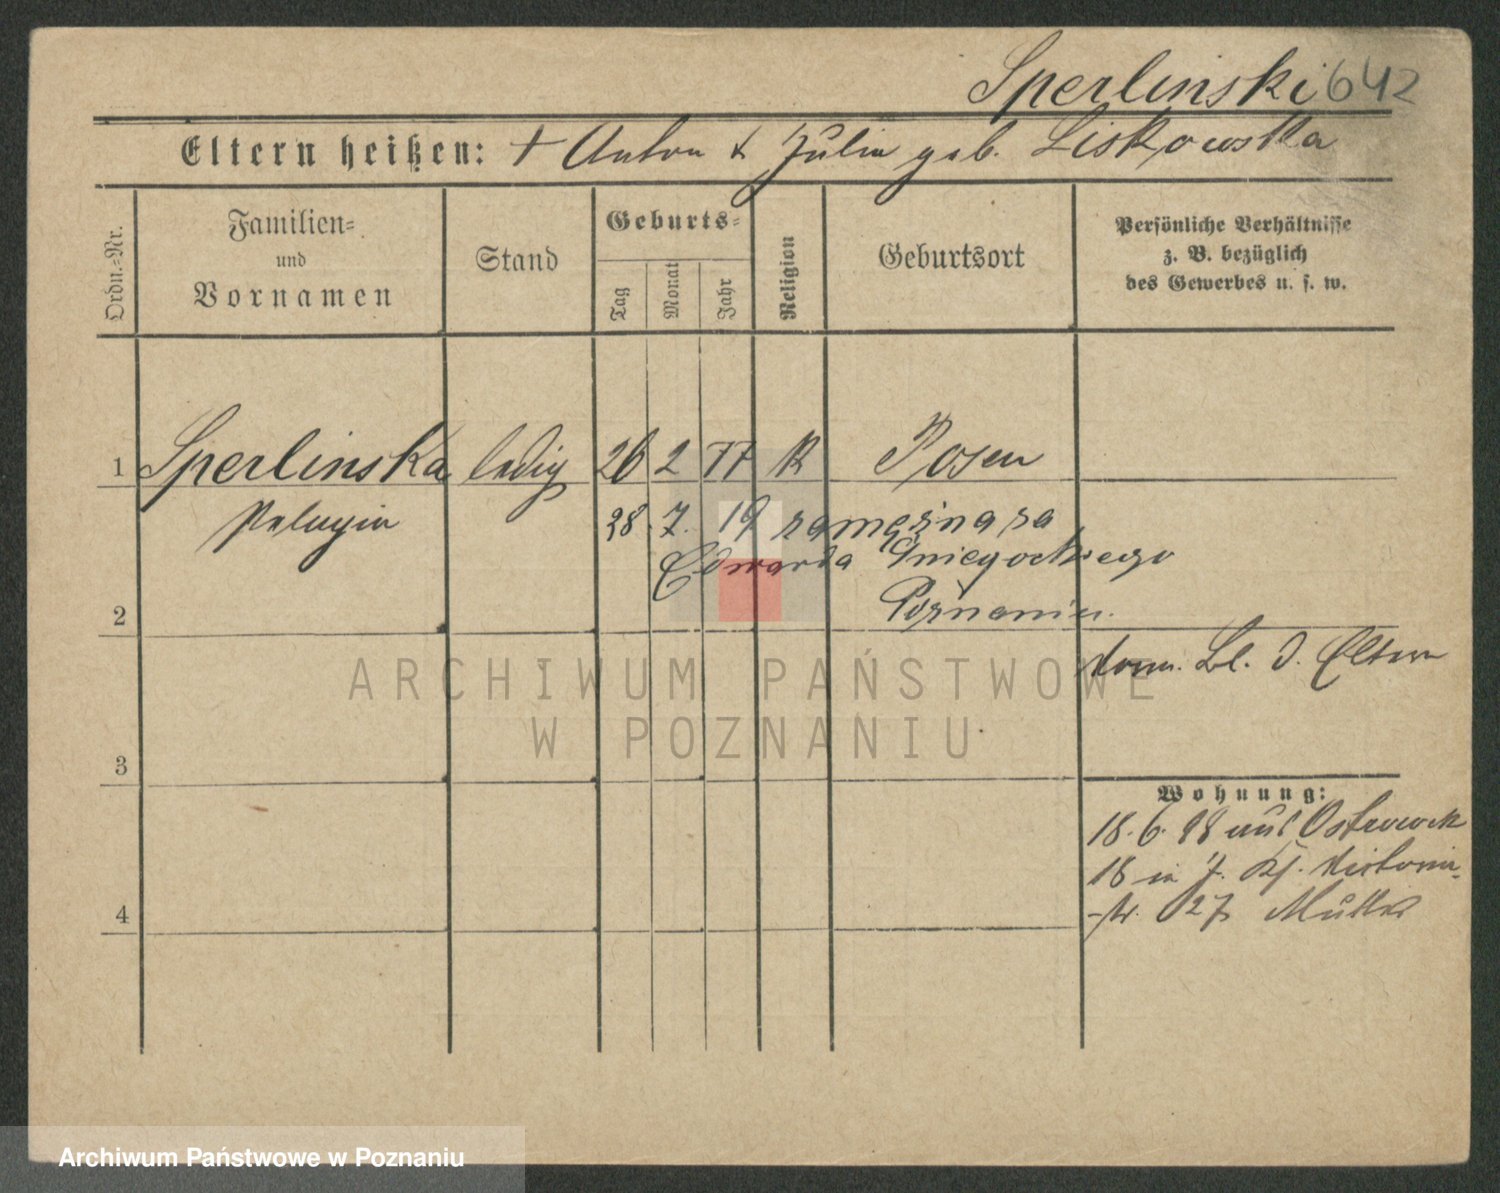 Sperlinski 642
Eltern heißen: + Anton & Julia geb. Liskowska
Ordn.=Nr.
Familien=
und
Vornamen
Stand
Geburts=
Tag
Monat
Jahr
Religion
Geburtsort
Persönliche Verhältnisse
z. B. bezüglich
des Gewerbes u. s. w.
1 Sperlinska ledig 26 2 77 K Posen
Pelagia
28. 7. 19 zamężna za
Edwarda Śniegockiego
Poznaniu.
2
3
4
Bl. d. Eltern
Wohnung:
18. 6. 98 aus Ostrowek
18 in J. Kf. Victoria-
str. 27 Mutter
ARCHIWUM PAŃSTWOWE
W POZNANIU
Archiwum Państwowe w Poznaniu